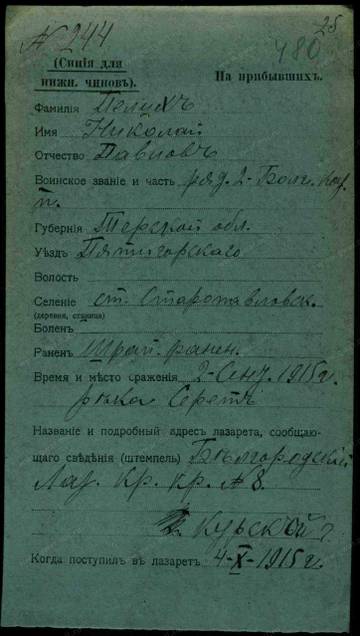 25
№ 244
480
(Синія для
нижн. чиновъ).
На прибывшихъ.
Фамилія Пелихъ
Имя Николай
Отчество Павловъ
Воинское званіе и часть ряд. 2-
п.
Губернія Терской обл.
Уѣздъ Пятигорскаго
Волость
Селеніе ст. Старопавловск.
(деревня, станица)
Болѣнъ
Раненъ ранен.
Время и мѣсто сраженія 2- 1915 г.
рѣка Серетъ
Названіе и подробный адресъ лазарета, сообщаю-
щаго свѣдѣнія (штемпель) Бѣлгородскій
Лаз. Кр. кр. № 8.
Курской г.
Когда поступилъ въ лазаретъ 4-X-1915 г.